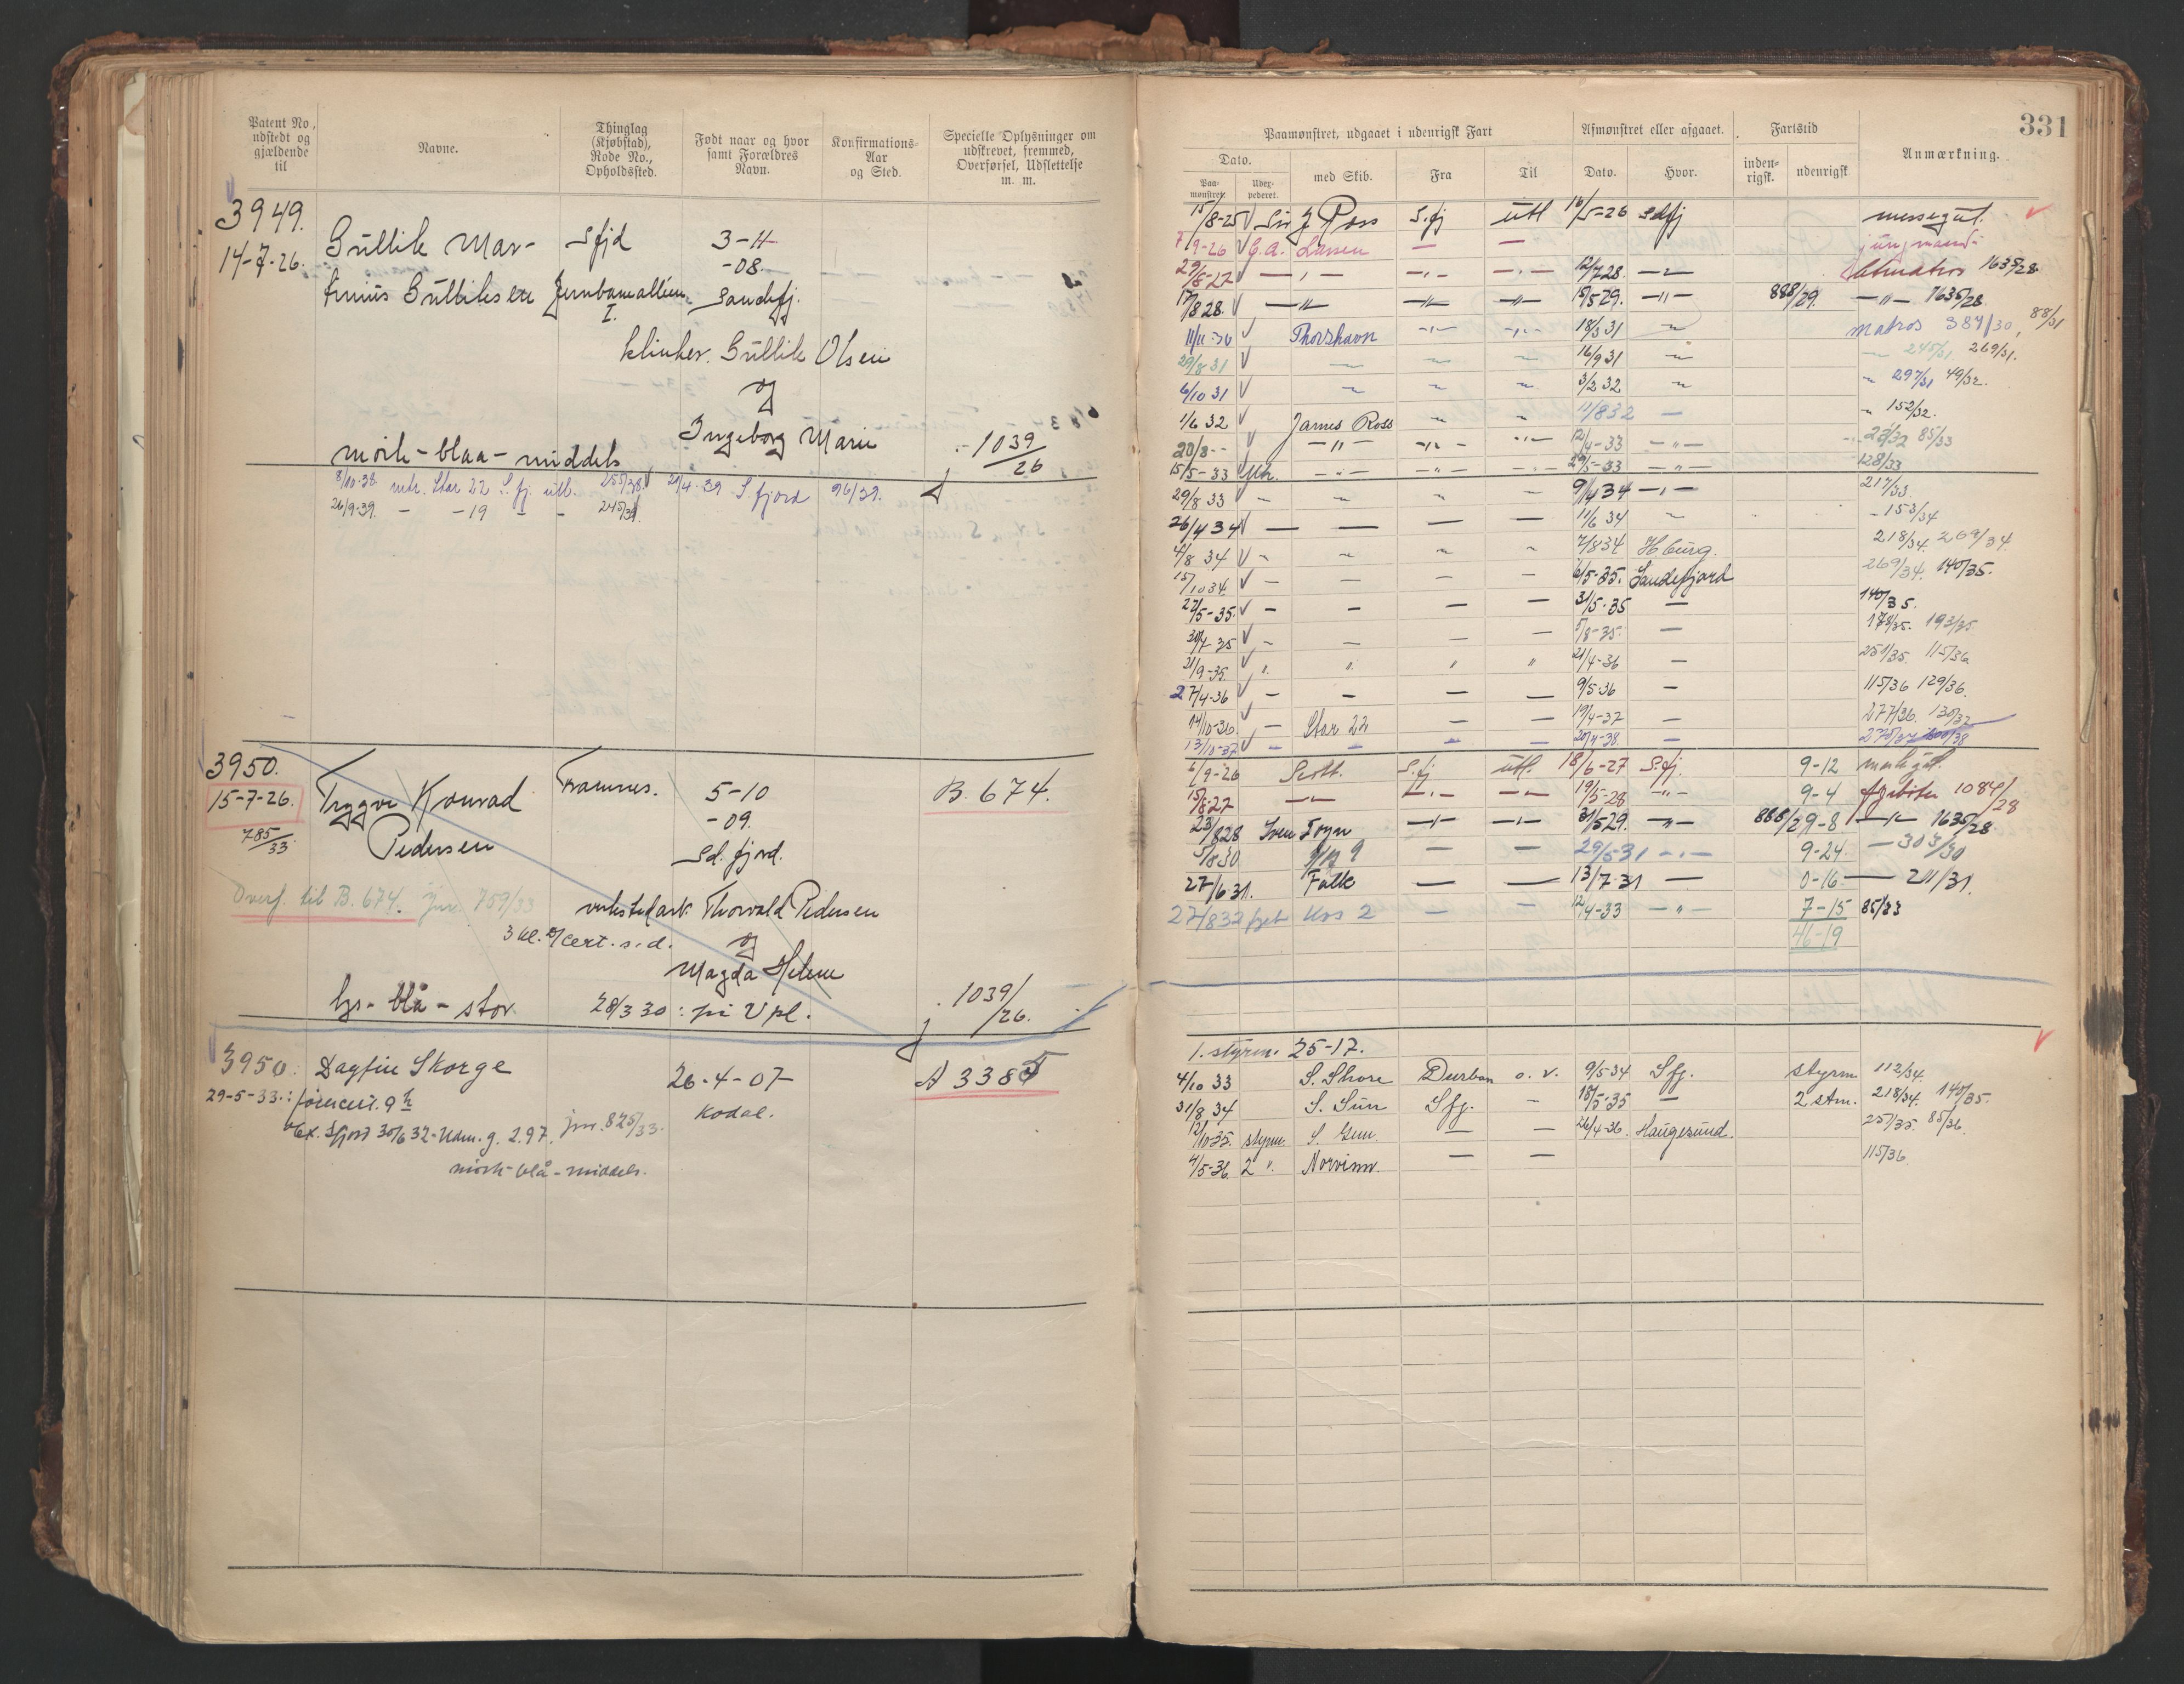 Patent No., udstedt og gjældende til
Navne.
Thinglag (Kjøbstad), Rode No., Opholdssted.
Født naar og hvor samt Forældres Navn.
Konfirmations-Aar og Sted.
Specielle Oplysninger om udskrevet, fremmed, Overførsel, Udslettelse m. m.
3949.
14-7-26.
Gullik Mar-
Sfjd
3-11
-08.
tinius Gulliksen Jernbanealleen Sandefj.
I.
klinker. Gullik Olsen
og
Ingeborg Marie
mørk-blaa-middels
1039/26
8/10-38 mtr. Star 22 S.fj. utl. 255/38. 21/4-39 S.fjord 96/39.
26/9-39. - -19 - - 245/39.
3950.
15-7-26.
785/33
Trygve Konrad
Pedersen
Framnes.
5-10
-09.
Sd.fjord.
B. 674.
Overf. til B. 674. jnr. 759/33
verkstedarb. Thorvald Pedersen
3 kl. cert. s.d.
og
Magda Helene
lys-blå-stor
28/3 30: på Vpl.
j. 1039/26.
3950. Dagfin Skorge
26-4-07
A 3385
29-5-33.:
Kodal.
Ex. Sfjord 30/6 32-Udm. g. 2.97. jnr. 825/33.
mørk-blå-middels.
331
Paamønstret, udgaaet i udenrigsk Fart
Afmønstret eller afgaaet.
Fartstid
Anmærkning.
Dato.
Paa-mønstret.
Uder-pederet.
med Skib.
Fra
Til
Dato.
Hvor.
inden-rigsk.
udenrigsk
15/8-25 Sir J Ross S.fj utl 16/5-26 Sdfj messegut.
7/9-26 C.A. Larsen — — jungmand
29/8-27 — " — — " — — " — 12/7 28. — " — letmatros 1635/28
17/8 28. — " — — " — — " — 15/5 29. — " — 888/29. — " — 1635/28
11/11-30 Thorshavn — " — — " — 18/3 31 — " — Matros 384/30, 88/31
29/8 31 — " — — " — — " — 16/9 31 — " — — " — 245/31 269/31.
6/10 31 — " — — " — — " — 3/2 32 — " — — " — 297/31 49/32.
1/6 32 James Ross — " — — " — 11/8 32 — — " — 152/32.
20/8-- — " — — " — — " — 12/4-33 — " — 85/33
15/5-33 Mtr. — " — — " — — " — 29/5-33 — " — 128/33
29/8 33 — — — — 9/4 34 — " — 217/33.
26/4 34 — — — — 11/6 34 — 153/34
4/8 34 — — — — 7/8 34 Hburg. 218/34. 269/34.
15/10 34. — — — — 6/5-35. Sandefjord 269/34. 140/35.
22/5-35. — — — — 31/5-35 — 140/35.
30/7-35 — — — — 5/8-35. — 178/35. 193/35
21/9-35. " " " " 21/4-36 — 251/35. 115/36
27/4-36 — — — — 9/5-36 — 115/36 129/36.
14/10-36 — Star 22 — — 19/4-37 — 277/36. 130/37
13/10-37 — — — — 20/4-38. —
6/9-26 Scott. S.fj utl. 18/6-27 S.fj. 9-12
15/8-27 — " — — " — — " — 19/5-28 — " — 9-4 1084/28
23/8 28 Sven Foyn — " — — " — 31/5 29. — " — 888/29-8 — " — 1635/28
5/8 30 — — 29/5-31 — " — 9-24. — 303/30
27/6 31. Falk — — 13/7-31 — 0-16 — 211/31.
27/8 32 Kos 2 — — 12/4-33 — " — 7-15 85/33
46-19
1. styrm. 25-17.
4/10 33 S. Shore Durban o. v. 9/5-34 Sfj. styrm. 112/34.
31/8 34 S. Sun Sfj. — 18/5-35 — 2 stm. 218/34. 140/35.
12/10-35. styrm. S. Gem. — — 26/4-36. Haugesund. 257/35. 85/36.
4/5-36. 2 ". Norvinn. — — 115/36